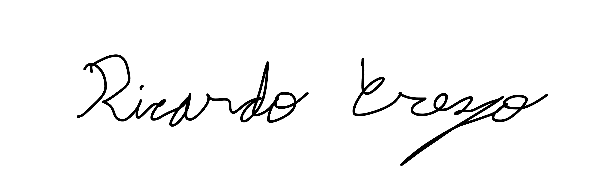 Ricardo Crespo